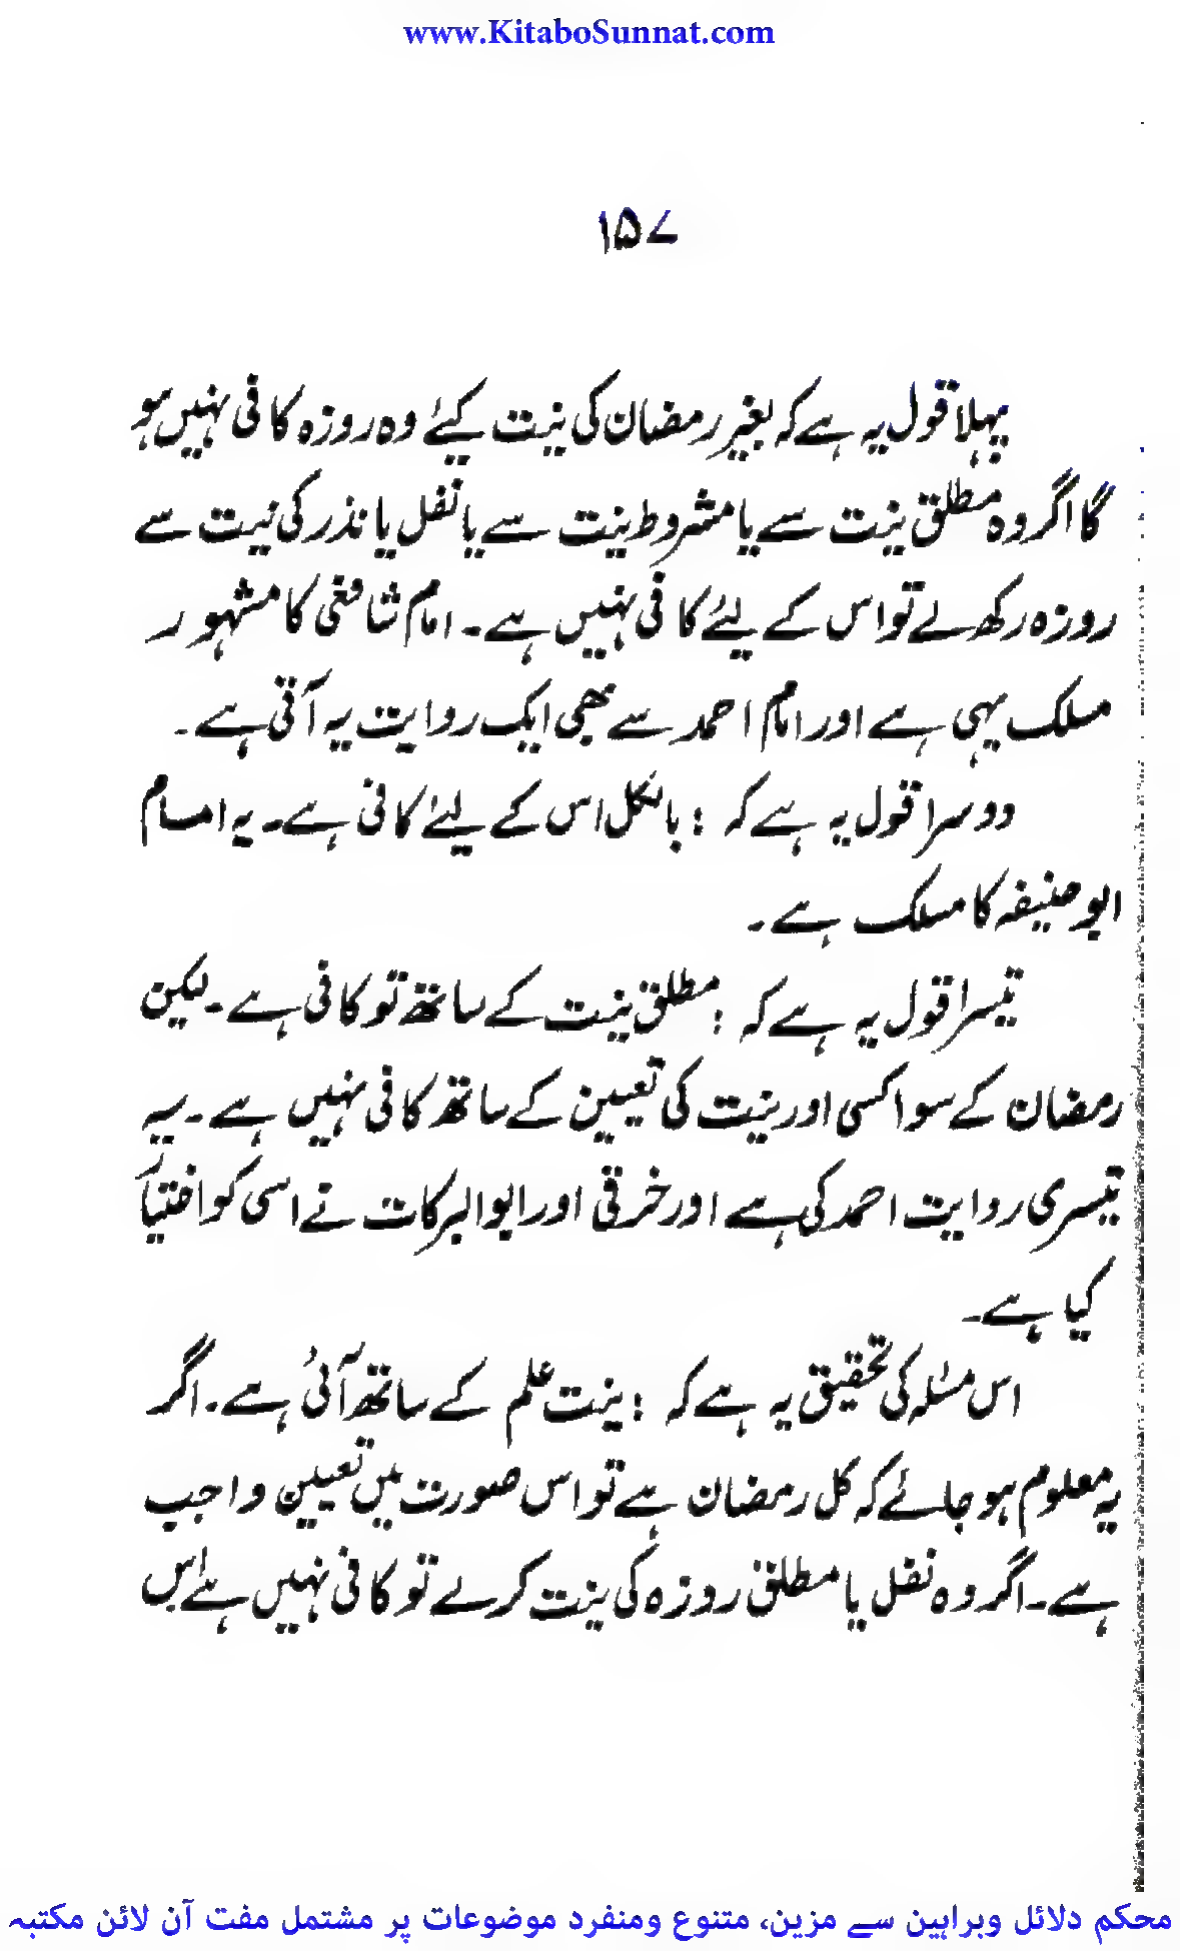 www.KitaboSunnat.com
۱۵۷
پہلا قول یہ ہے کہ بغیر رمضان کی نیت کیئے وہ روزہ کافی نہیں ہو
گا اگر وہ مطلق نیت سے یا مشروط نیت سے یا نفل یا نذر کی نیت سے
روزہ رکھ لے تو اس کے لیئے کافی نہیں ہے۔ امام شافعی کا مشہور
مسلک یہی ہے اور امام احمد سے بھی ایک روایت یہ آتی ہے۔
دوسرا قول یہ ہے کہ : بالکل اس کے لیئے کافی ہے۔ یہ امام
ابو حنیفہ کا مسلک ہے۔
تیسرا قول یہ ہے کہ : مطلق نیت کے ساتھ تو کافی ہے۔ لیکن
رمضان کے سوا کسی اور نیت کی تعیین کے ساتھ کافی نہیں ہے۔ یہ
تیسری روایت احمد کی ہے اور خرقی اور ابو البرکات نے اسی کو اختیار
کیا ہے۔
اس مسئلہ کی تحقیق یہ ہے کہ : نیت علم کے ساتھ آئی ہے۔ اگر
یہ معلوم ہو جائے کہ کل رمضان ہے تو اس صورت میں تعیین واجب
ہے۔ اگر وہ نفل یا مطلق روزہ کی نیت کر لے تو کافی نہیں ہے اس
محکم دلائل وبراہین سے مزین، متنوع ومنفرد موضوعات پر مشتمل مفت آن لائن مکتبہ